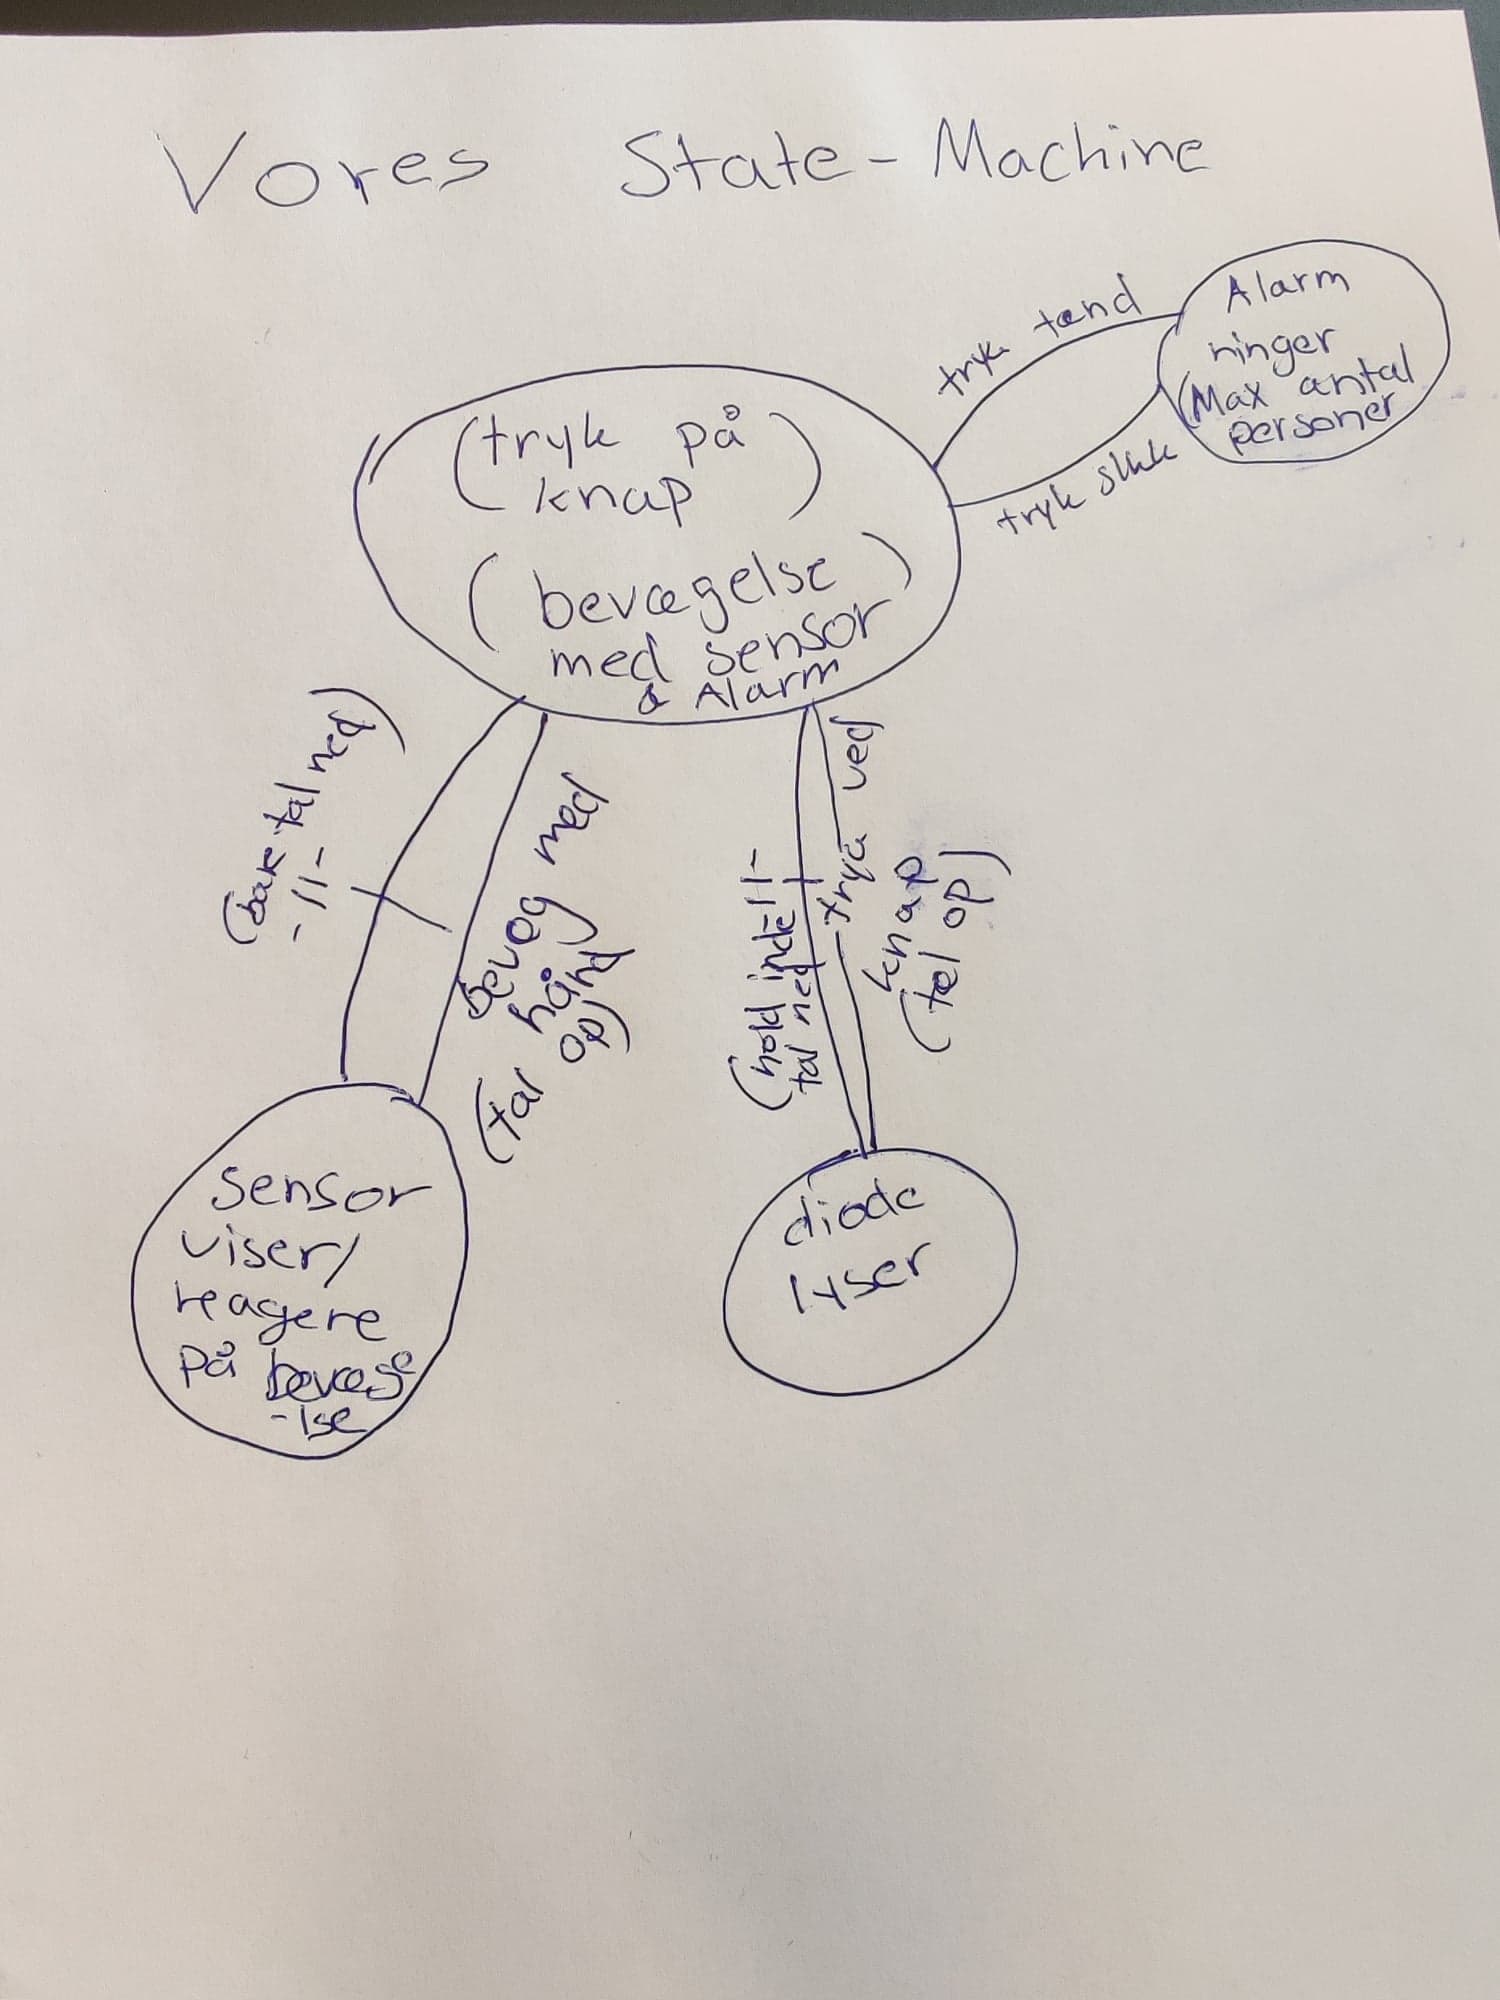 Vores State-Machine
Alarm
ringer
(Max antal
personer
tryk tænd
tryk sluk
(tryk på)
knap
(bevægelse)
med sensor
& Alarm
(bare tal ned)
-11-
bevæg med
hånd
(tal op)
(hold inde -11-
tal ned
tryk ved
knap
(tal op)
Sensor
viser/
reagere
på bevæge
-lse
diode
lyser